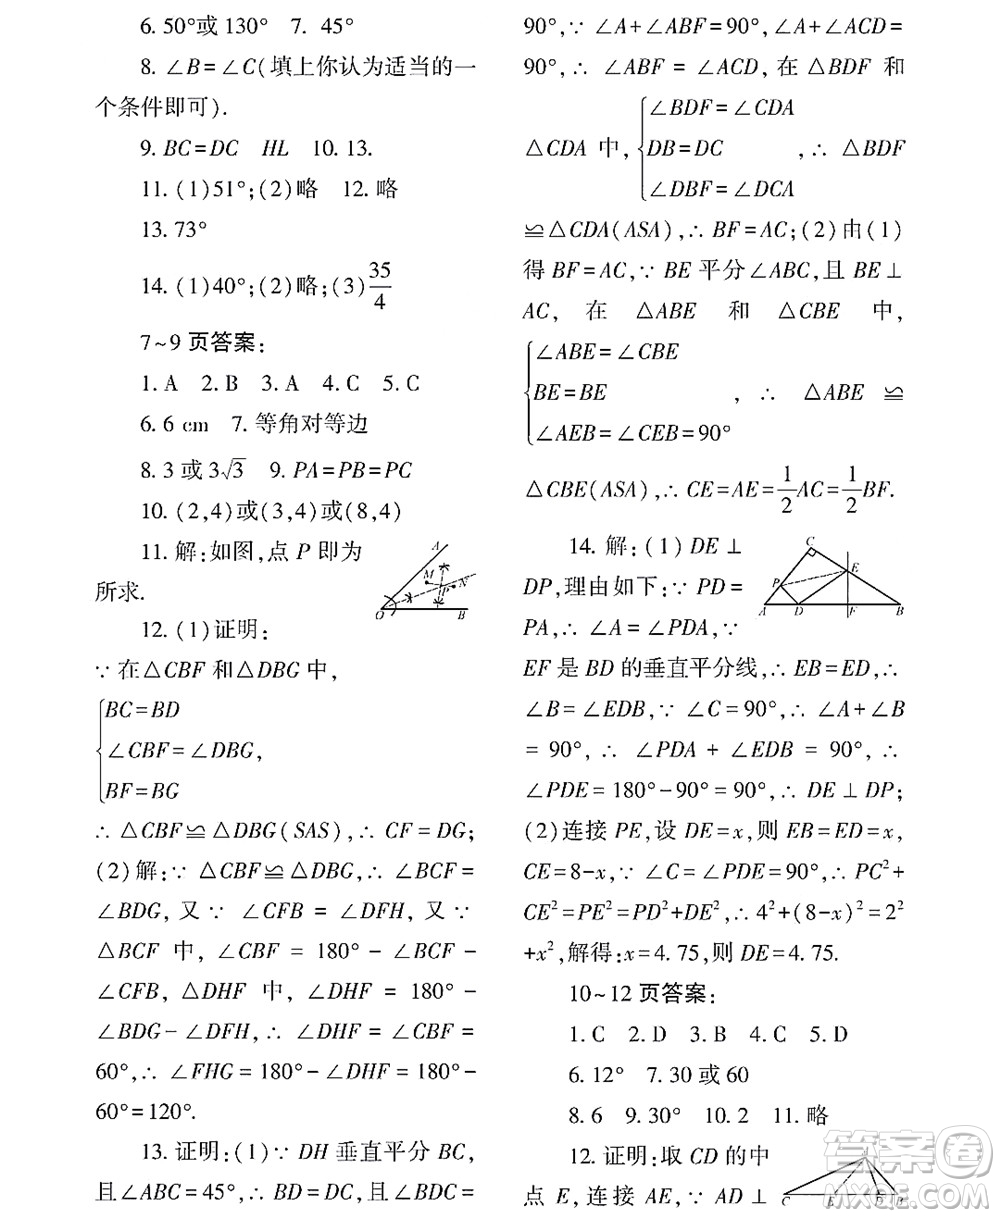 6. 50°或 130°　7. 45°
8. ∠B=∠C(填上你认为适当的一
个条件即可).
9. BC=DC　HL　10. 13.
11. (1)51°;(2)略　12. 略
13. 73°
14. (1)40°;(2)略;(3)35/4
7~9 页答案:
1. A　2. B　3. A　4. C　5. C
6. 6 cm　7. 等角对等边
8. 3 或 3√3　9. PA=PB=PC
10. (2,4)或(3,4)或(8,4)
11. 解:如图,点 P 即为
所求.
A
M
N
P
O
B
12. (1)证明:
∵在△CBF 和△DBG 中,
BC=BD
∠CBF=∠DBG,
BF=BG
∴ △CBF≌△DBG(SAS),∴ CF=DG;
(2)解:∵ △CBF≌△DBG,∴ ∠BCF=
∠BDG,又∵ ∠CFB=∠DFH,又∵
△BCF 中,∠CBF=180°-∠BCF-
∠CFB,△DHF 中,∠DHF=180°-
∠BDG-∠DFH,∴ ∠DHF=∠CBF=
60°,∴ ∠FHG=180°-∠DHF=180°-
60°=120°.
13. 证明:(1)∵ DH 垂直平分 BC,
且∠ABC=45°,∴ BD=DC,且∠BDC=
90°,∵ ∠A+∠ABF=90°,∠A+∠ACD=
90°,∴ ∠ABF=∠ACD,在△BDF 和
△CDA 中,
∠BDF=∠CDA
DB=DC
∠DBF=∠DCA
,∴ △BDF
≌△CDA(ASA),∴ BF=AC;(2)由(1)
得 BF=AC,∵ BE 平分∠ABC,且 BE⊥
AC,在△ABE 和△CBE 中,
∠ABE=∠CBE
BE=BE
∠AEB=∠CEB=90°
,∴ △ABE≌
△CBE(ASA),∴ CE=AE=1/2AC=1/2BF.
14. 解:(1)DE⊥
DP,理由如下:∵ PD=
PA,∴ ∠A=∠PDA,∵
C
E
P
A
D
F
B
EF 是 BD 的垂直平分线,∴ EB=ED,∴
∠B=∠EDB,∵ ∠C=90°,∴ ∠A+∠B
=90°,∴ ∠PDA+∠EDB=90°,∴
∠PDE=180°-90°=90°,∴ DE⊥DP;
(2)连接 PE,设 DE=x,则 EB=ED=x,
CE=8-x,∵ ∠C=∠PDE=90°,∴ PC²+
CE²=PE²=PD²+DE²,∴ 4²+(8-x)²=2²
+x²,解得:x=4.75,则 DE=4.75.
10~12 页答案:
1. C　2. D　3. B　4. C　5. D
6. 12°　7. 30 或 60
8. 6　9. 30°　10. 2　11. 略
12. 证明:取 CD 的中
点 E,连接 AE,∵ AD⊥
C
E
D
B
答案圈